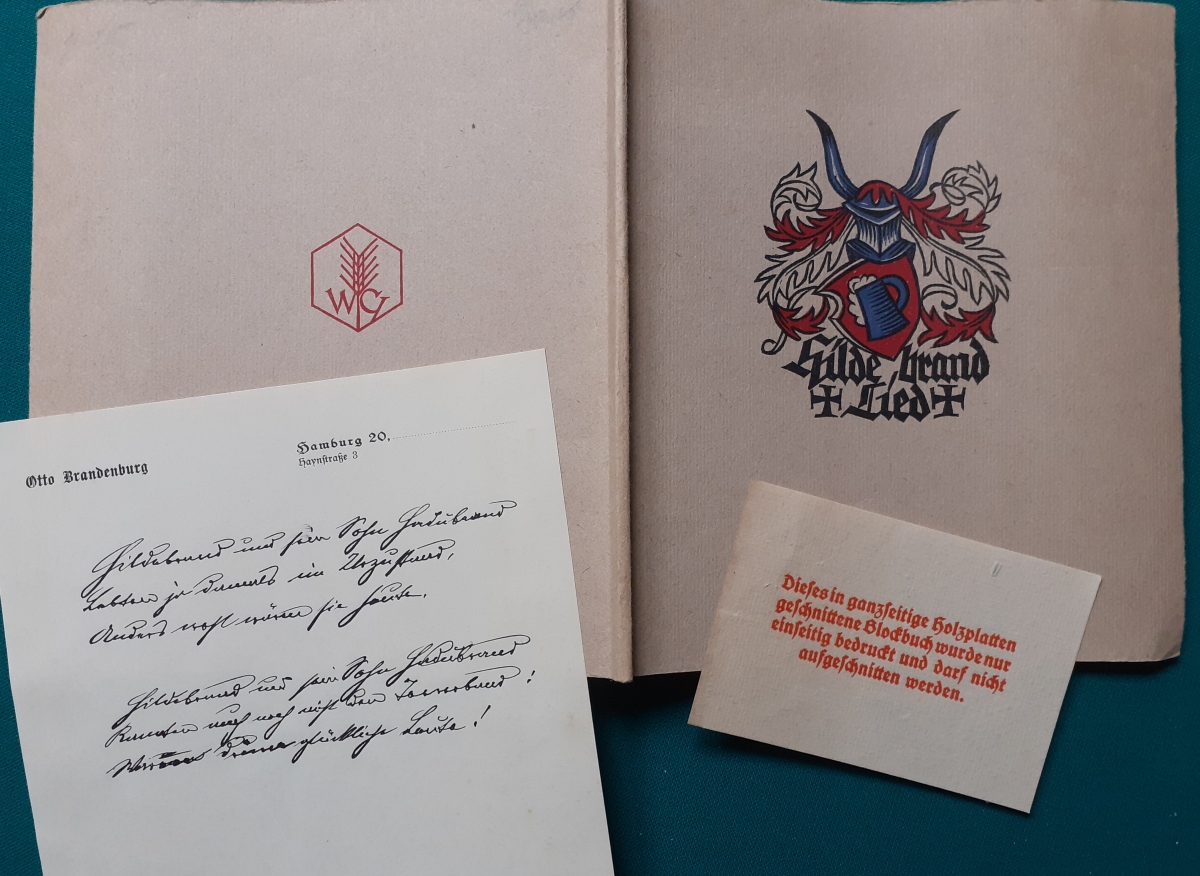 WG
Hildebrand
Lied
Otto Brandenburg
Hamburg 20,
Haynstraße 3
Hildebrand und sein Sohn Hadubrand
Lebten ja damals im Urzustand,
Anders wohl wären sie heute.
Hildebrand und sein Sohn Hadubrand
Kannten auch noch nicht den
drum glückliche Leute!
Dieses in ganzseitige Holzplatten
geschnittene Blockbuch wurde nur
einseitig bedruckt und darf nicht
aufgeschnitten werden.